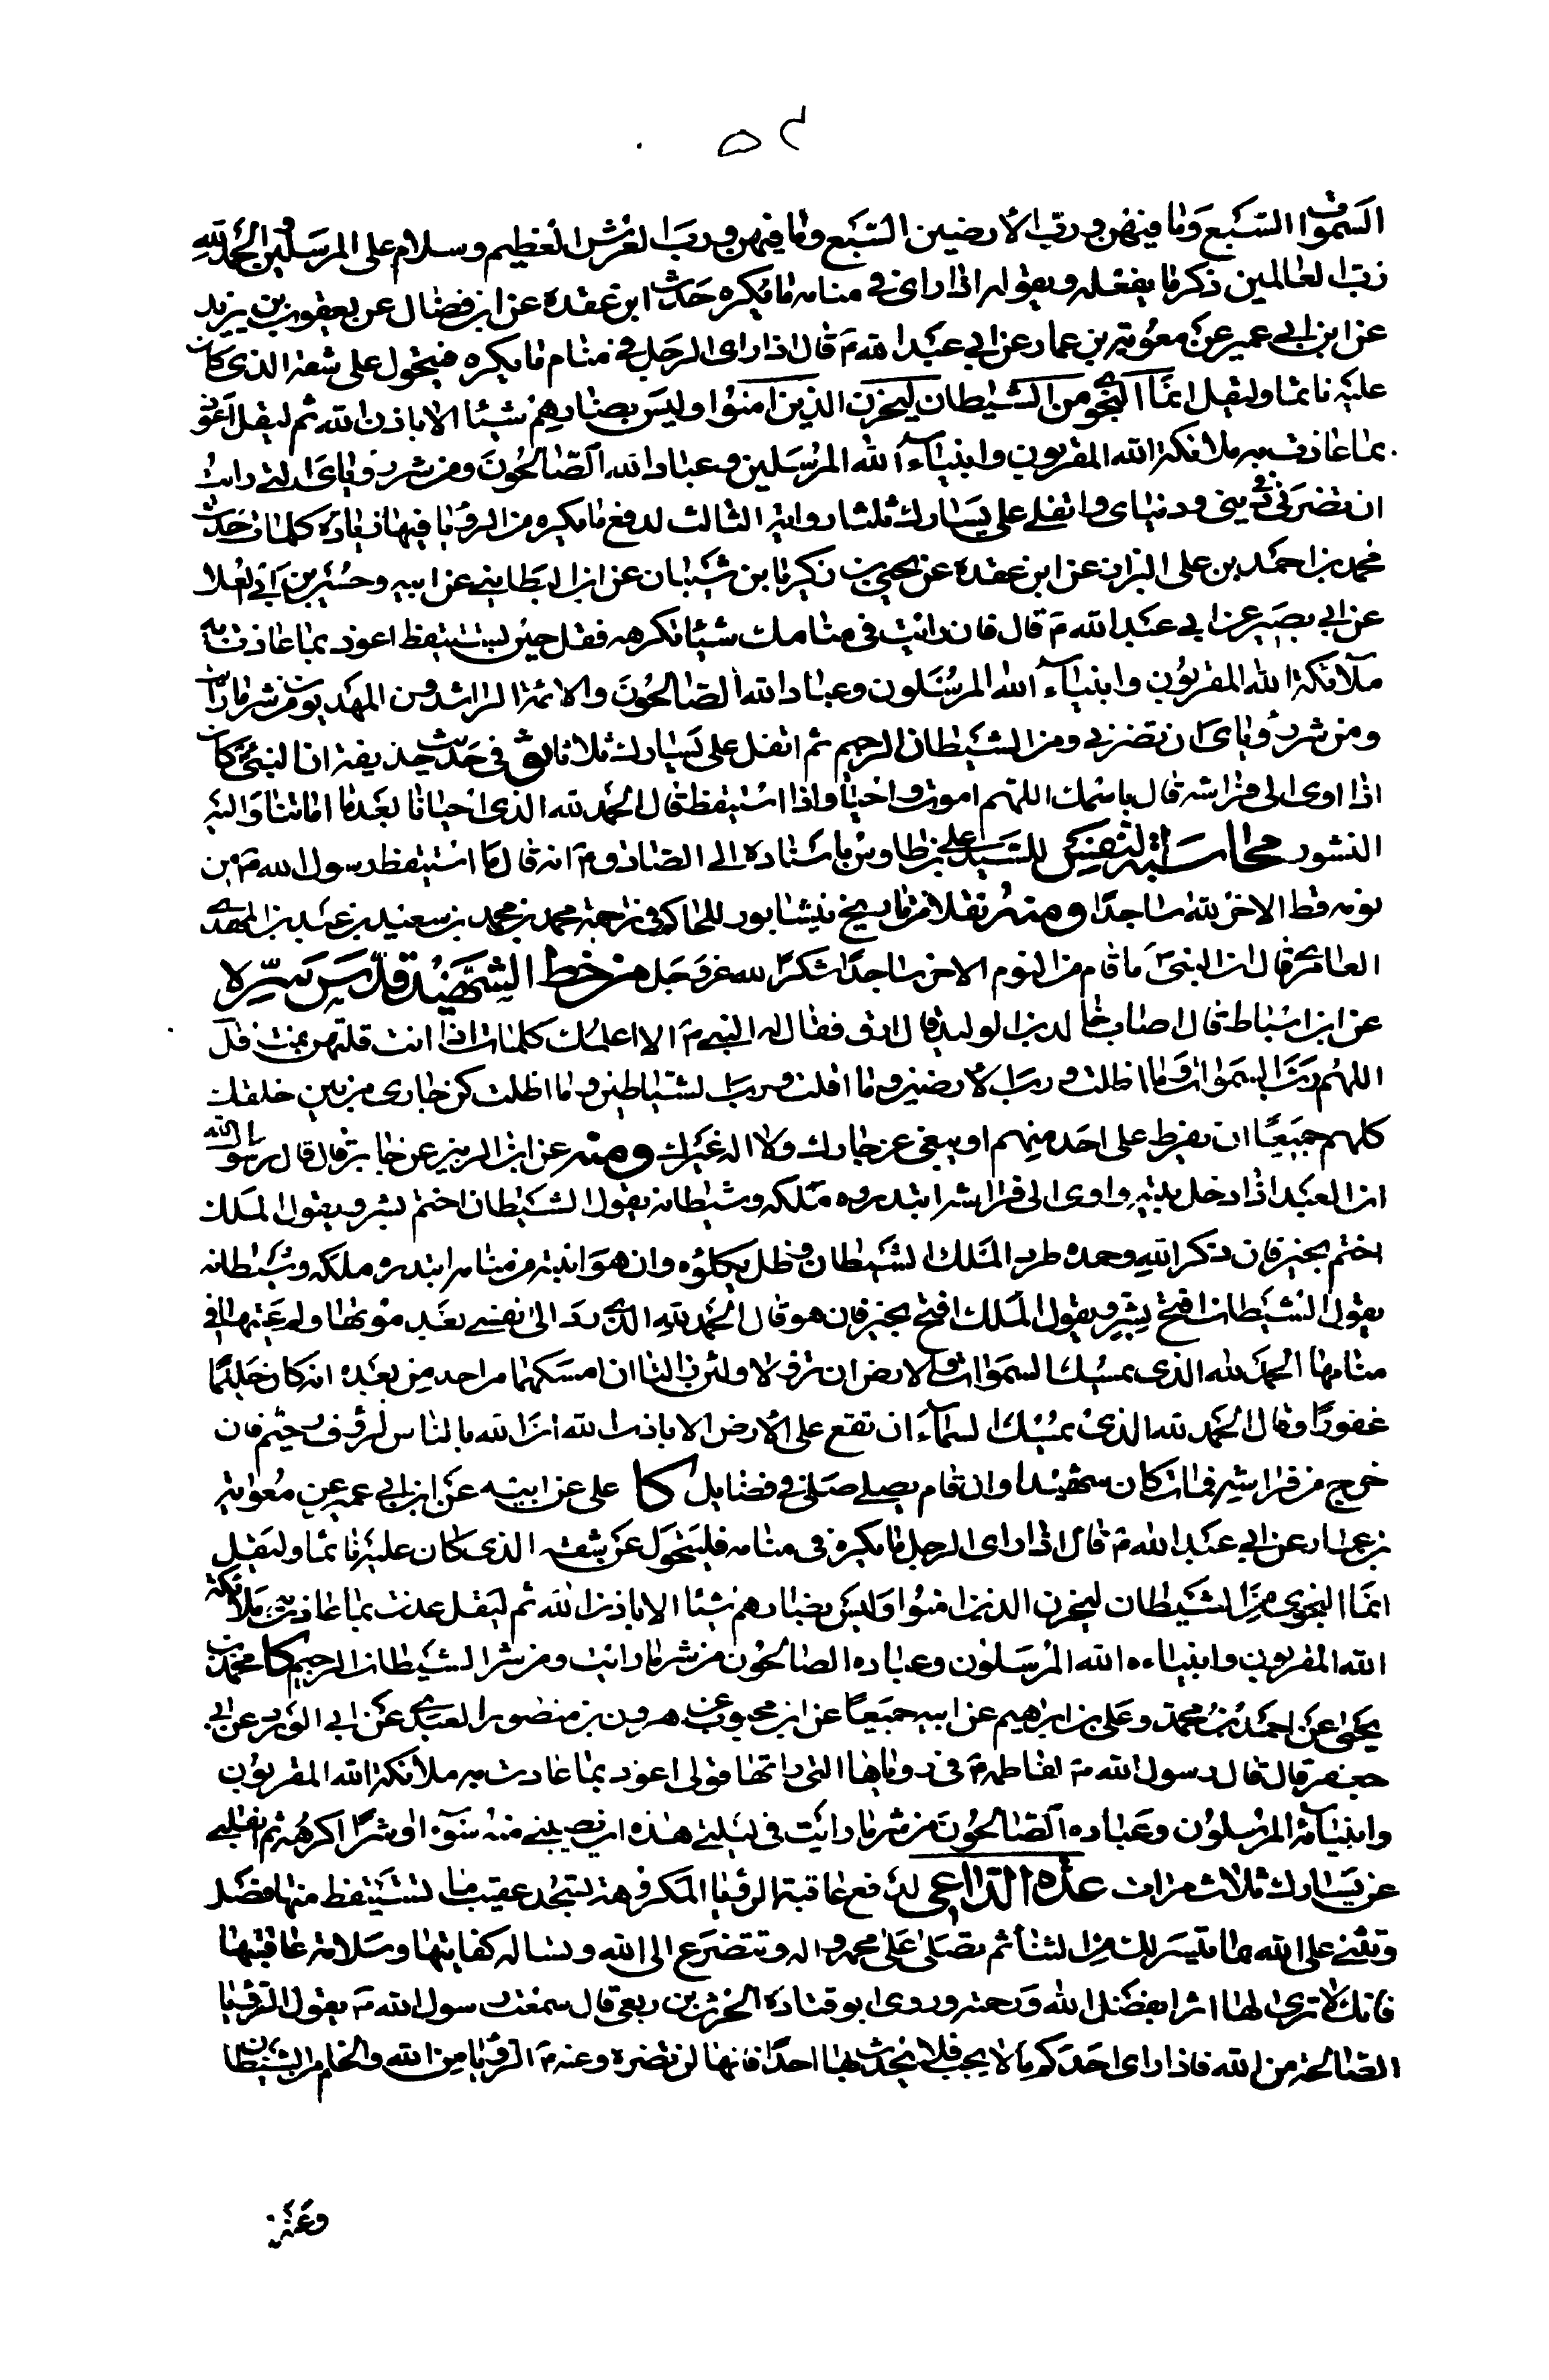 ٥٢
السموات السبع وما فيهن ورب الأرضين السبع وما فيهن ورب العرش العظيم وسلام على المرسلين والحمد لله
رب العالمين ذكر ما يفعله ويقوله اذا راى في منامه ما يكره حدث ابن عقدة عن ابن فضال عن يعقوب بن يزيد
عن ابن ابي عمير عن معوية بن عمار عن ابي عبد الله م قال اذا راى الرجل في منام ما يكره فيتحول على شقه الذى كان
عليه نائما وليقل انما النجوى من الشيطان ليحزن الذين امنوا وليس بضارهم شيئا الا باذن الله ثم ليقل اعوذ
بما عاذت به ملائكة الله المقربون وانبياء الله المرسلين وعباد الله الصالحون ومن شر رؤياى التي رايت
ان تضرني في ديني ودنياى واتفل على يسارك ثلثا رواية الثالث لدفع ما يكره من الرؤيا فيها زيادة كلمات حدث
محمد بن احمد بن على البزاز عن ابن عقدة عن يحيى بن زكريا بن شيبان عن ابن البطايني عن ابيه وحسين بن ابي العلا
عن ابي بصير عن ابي عبد الله م قال فان رايت في منامك شيئا تكرهه فقل حين تستيقظ اعوذ بما عاذت به
ملائكة الله المقربون وانبياء الله المرسلون وعباد الله الصالحون والائمة الراشدون المهديون من شر ما رايت
ومن شر رؤياى ان تضرني ومن الشيطان الرجيم ثم اتفل على يسارك ثلاثا في حديث حذيفة ان النبي كان
اذا اوى الى فراشه قال باسمك اللهم اموت واحيا واذا استيقظ قال الحمد لله الذى احيانا بعد ما اماتنا واليه
النشور محاسبة النفس للسيد علي بن طاوس باسناده الى الصادق م انه قال ما استيقظ رسول الله م من
نومه قط الا خر لله ساجدا ومنه نقلا من تاريخ نيشابور للحاكم في ترجمة محمد بن محمد بن سعيد بن عبد بن المهدى
العامرى قال ان النبى ما قام من النوم الا خر ساجدا شكرا لله عز وجل من خط الشهيد قدس سره
عن ابن اسباط قال اصاب خالد بن الوليد قال ارق فقال له النبي م الا اعلمك كلمات اذا انت قلتهن نمت قل
اللهم رب السموات وما اظلت ورب الارضين وما اقلت ورب الشياطين وما اظلت كن جارى من بين خلقك
كلهم جميعا ان يفرط على احد منهم او يبغى عز جارك ولا اله غيرك ومنه عن ابن الزبير عن جابر قال قال رسول الله
ان العبد اذا دخل بيته واوى الى فراشه ابتدروه ملكه وشيطانه يقول الشيطان اختم بشر ويقول الملك
اختم بخير فان ذكر الله وحده طرد الملك الشيطان وظل يكلؤه وان هو انتبه من منامه ابتدره ملكه وشيطانه
يقول الشيطان افتح بشر ويقول الملك افتح بخير فان هو قال الحمد لله الذي رد الى نفسي بعد موتها ولم يمتها في
منامها الحمد لله الذى يمسك السموات والارض ان تزولا ولئن زالتا ان امسكهما من احد من بعده انه كان حليما
غفورا وقال الحمد لله الذى يمسك السماء ان تقع على الأرض الا باذنه ان الله بالناس لرؤف رحيم فان
خرج من فراشه فمات كان شهيدا وان قام يصلي صلى في فضايل كا على عن ابيه عن ابن ابي عمير عن معوية
بن عمار عن ابي عبد الله م قال اذا راى الرجل ما يكره في منامه فليتحول عن شقه الذى كان عليه نائما وليقل
انما النجوى من الشيطان ليحزن الذين امنوا وليس بضارهم شيئا الا باذن الله ثم ليقل عذت بما عاذت به ملائكة
الله المقربون وانبياءه الله المرسلون وعباده الصالحون من شر ما رايت ومن شر الشيطان الرجيم كا محمد بن
يحيى عن احمد بن محمد وعلى بن ابراهيم عن ابيه جميعا عن ابن محبوب عن هرون بن منصور العبدى عن ابي الورد عن ابي
جعفر قال قال رسول الله م لفاطمة م في رؤياها التى راتها قولي اعوذ بما عاذت به ملائكة الله المقربون
وانبيائه المرسلون وعباده الصالحون من شر ما رايت في ليلتي هذه ان يصيبني منه سوء او شر اكرهه ثم اتفلي
عن يسارك ثلاث مرات عدة الداعي لدفع عاقبة الرؤيا المكروهة تسجد عقيب ما تستيقظ منها بفضل
وتثني على الله بما تيسر لك من الثنا ثم تصلى على محمد واله وتتضرع الى الله وتساله كفايتها وسلامة عاقبتها
فانك لا ترى لها اثرا بفضل الله ورحمته وروى ابو قتادة الحرث بن ربعى قال سمعت رسول الله م يقول الرؤيا
الصالحة من الله فاذا راى احدكم ما لا يحب فلا يحدث بها احدا فانها لن تضره وعنه م الرؤيا من الله والحلم من الشيطان
وعنه